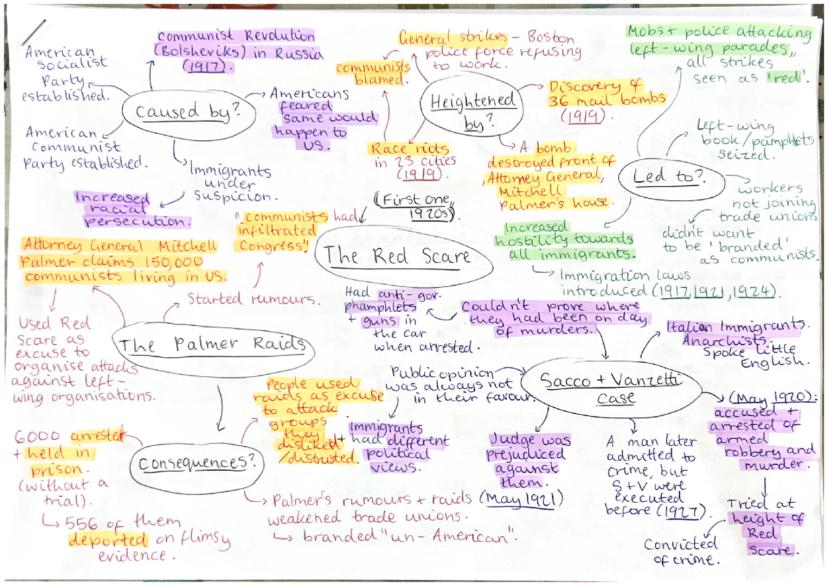 American
socialist
Party
established.
Communist Revolution
(Bolsheviks) in Russia
(1917).
Caused by?
American
Communist
Party established.
Americans
feared
same would
happen to
US.
Immigrants
under
suspicion.
Increased
racial
persecution.
General strikes - Boston
police force refusing
to work.
communists
blamed.
Heightened
by?
Discovery of
36 mail bombs
(1919)
Race riots
in 23 cities
(1919)
A bomb
destroyed front of
Attorney General,
Mitchell
Palmer's house.
Mobs + police attacking
left-wing parades,
all strikes
seen as 'red'.
Left-wing
book/pamphlets
seized.
Led to?
workers
not joining
trade unions
didn't want
to be 'branded'
as communists.
Increased
hostility towards
all immigrants.
Immigration laws
introduced (1917, 1921, 1924).
(First one,
1920s)
The Red Scare
"communists had
infiltrated
Congress"
Attorney General Mitchell
Palmer claims 150,000
communists living in US.
Started rumours.
Used Red
Scare as
excuse to
organise attacks
against left-
wing organisations.
The Palmer Raids
Consequences?
6000 arrested
+ held in
prison.
(without a
trial).
556 of them
deported on flimsy
evidence.
People used
raids as excuse
to attack
groups
they
disliked
/distrusted.
Palmer's rumours + raids
weakened trade unions.
branded "un-American".
Had anti-gov.
phamphlets
+ guns in
the car
when arrested.
Couldn't prove where
they had been on day
of murders.
Public opinion
was always not
in their favour.
+ Immigrants
had different
political
views.
Sacco + Vanzetti
case
Italian Immigrants.
Anarchists.
Spoke little
English.
(May 1920):
accused +
arrested of
armed
robbery and
murder.
Tried at
height of
Red
Scare.
Convicted
of crime.
Judge was
prejudiced
against
them.
(May 1921)
A man later
admitted to
crime, but
S+V were
executed
before (1927).